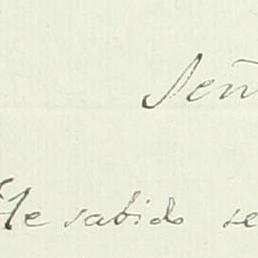 Señ
He sabido se